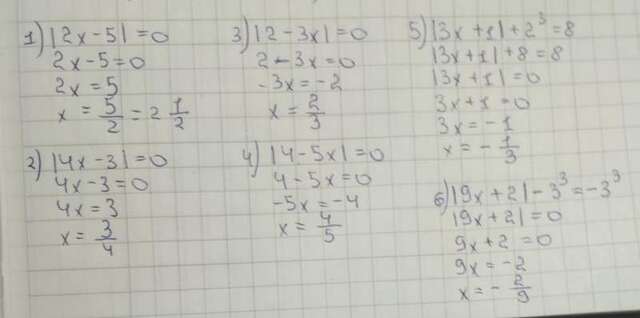 1) |2x-5|=0
2x-5=0
2x=5
x = 5/2 = 2 1/2
2) |4x-3|=0
4x-3=0
4x=3
x = 3/4
3) |2-3x|=0
2-3x=0
-3x=-2
x = 2/3
4) |4-5x|=0
4-5x=0
-5x=-4
x = 4/5
5) |3x+1|+2³=8
|3x+1|+8=8
|3x+1|=0
3x+1=0
3x=-1
x=-1/3
6) |9x+2|-3³=-3³
|9x+2|=0
9x+2=0
9x=-2
x=-2/9